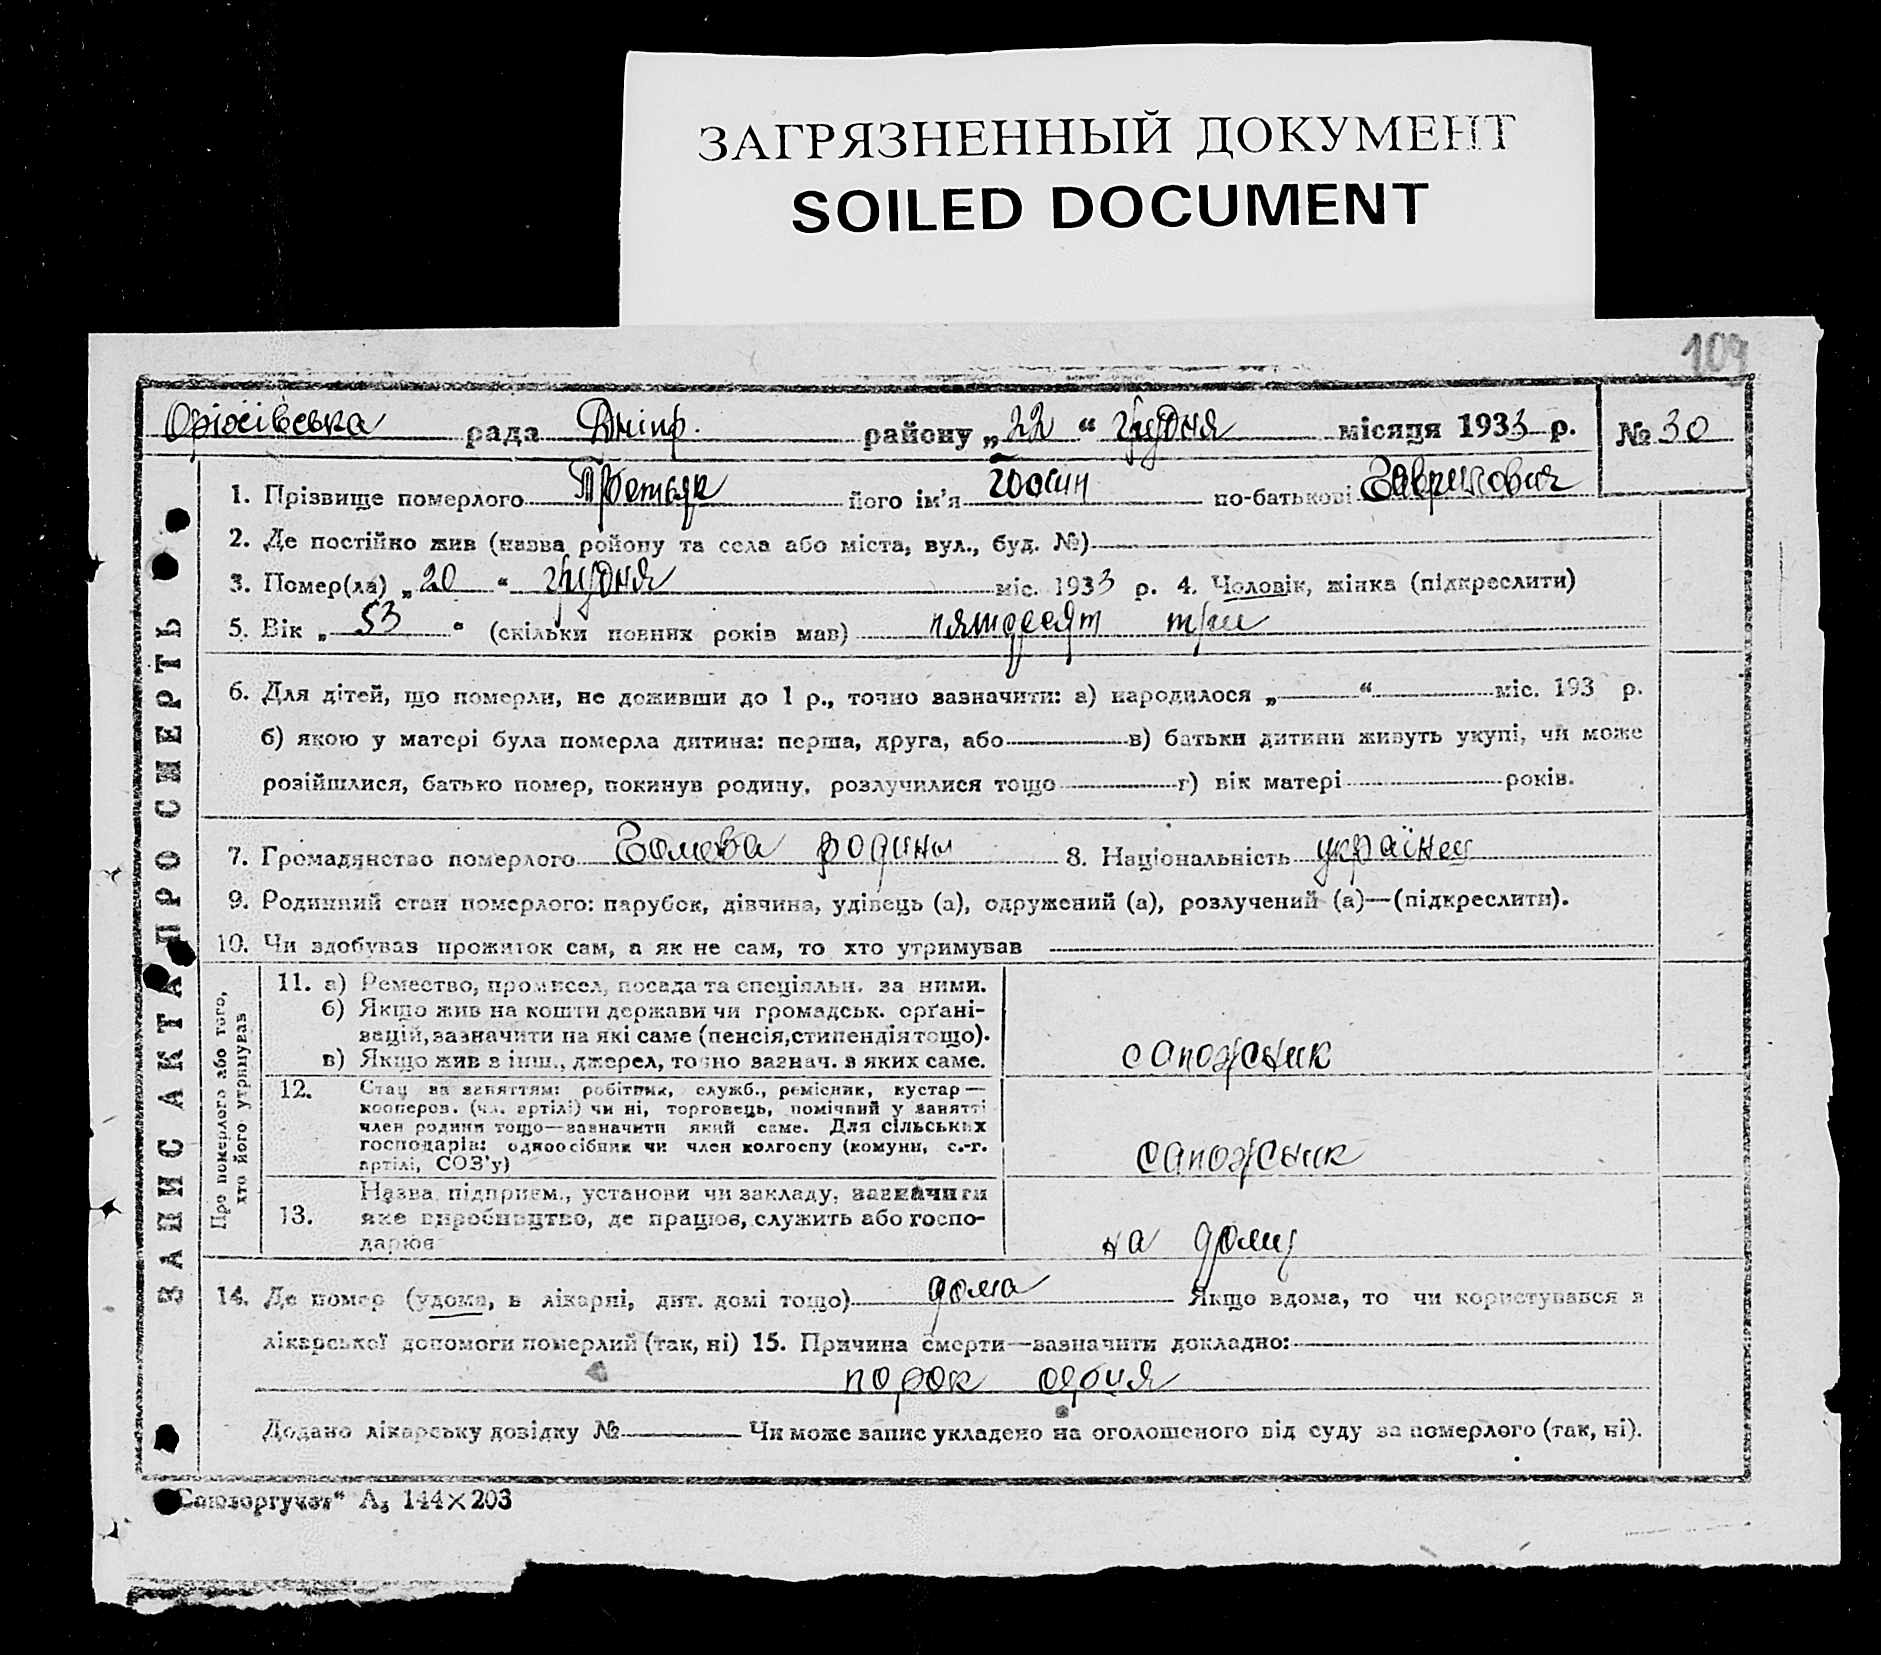 ЗАГРЯЗНЕННЫЙ ДОКУМЕНТ
SOILED DOCUMENT
109
Оріхівська рада Дніпр. району „22“ грудня місяця 1933 р. № 30
ЗАПИС АКТА ПРО СМЕРТЬ
1. Прізвище померлого Третьяк його ім'я по-батькові Гаврилович
2. Де постійно жив (назва району та села або міста, вул., буд. №)
3. Помер(ла) „20“ грудня міс. 1933 р. 4. Чоловік, жінка (підкреслити)
5. Вік „53“ (скільки повних років мав) пятдесят три
6. Для дітей, що померли, не доживши до 1 р., точно зазначити: а) народилося „ “ міс. 193 р.
б) якою у матері була померла дитина: перша, друга, або в) батьки дитини живуть укупі, чи може
розійшлися, батько помер, покинув родину, розлучилися тощо г) вік матері років.
7. Громадянство померлого Голова родини 8. Національність українец
9. Родинний стан померлого: парубок, дівчина, удівець (а), одружений (а), розлучений (а)—(підкреслити).
10. Чи здобував прожиток сам, а як не сам, то хто утримував
Про померлого або того,
хто його утримував
11. а) Ремество, промисел, посада та спеціяльн. за ними.
б) Якщо жив на кошти держави чи громадськ. орґані-
зацій, зазначити на які саме (пенсія, стипендія тощо).
в) Якщо жив з інш., джерел, точно зазнач. з яких саме.
сапожник
12. Стан за заняттям: робітник, служб., ремісник, кустар—
кооперов. (чл. артілі) чи ні, торговець, помічний у занятті
член родини тощо—зазначити який саме. Для сільських
господарів: одноосібник чи член колгоспу (комуни, с.-г.
артілі, СОЗ'у)
сапожник
13. Назва підприєм., установи чи закладу, зазначити
яке виробництво, де працює, служить або госпо-
дарює
на дому
14. Де помер (удома, в лікарні, дит. домі тощо) дома Якщо вдома, то чи користувався з
лікарської допомоги померлий (так, ні) 15. Причина смерти—зазначити докладно:
порок
Додано лікарську довідку № Чи може запис укладено на оголошеного від суду за померлого (так, ні).
„Союзоргучет“ А₅ 144×203